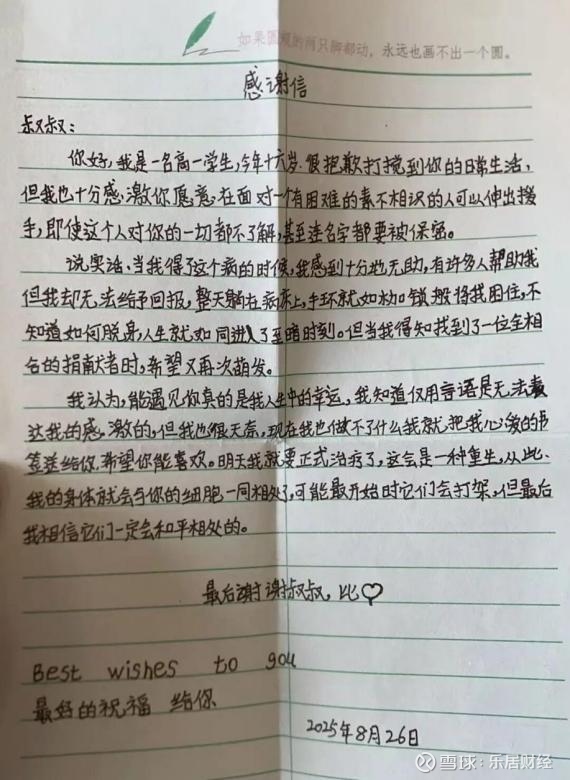 如果圆规的两只脚都动，永远也画不出一个圆。
感谢信
叔叔：
你好，我是一名高一学生，今年十六岁.很抱歉打搅到你的日常生活，
但我也十分感激你愿意在面对一个有困难的素不相识的人可以伸出援
手，即使这个人对你的一切都不了解，甚至连名字都要被保密。
说实话，当我得了这个病的时候，我感到十分地无助，有许多人帮助我
但我却无法给予回报，整天躺在病床上，手环就如枷锁般将我困住，不
知道如何脱身，人生就如同进入了至暗时刻。但当我得知找到了一位全相
合的捐献者时，希望又再次萌发。
我认为，能遇见你真的是我人生中的幸运，我知道仅用言语是无法表
达我的感激的，但我也很无奈，现在我也做不了什么我就把我心爱的书
签送给你，希望你能喜欢。明天我就要正式治疗了，这会是一种重生，从此、
我的身体就会与你的细胞一同相处了，可能最开始时它们会打架，但最后
我相信它们一定会和平相处的。
最后谢谢叔叔，比♡
Best wishes to you
最好的祝福 给你
2025年8月26日
雪球：乐居财经